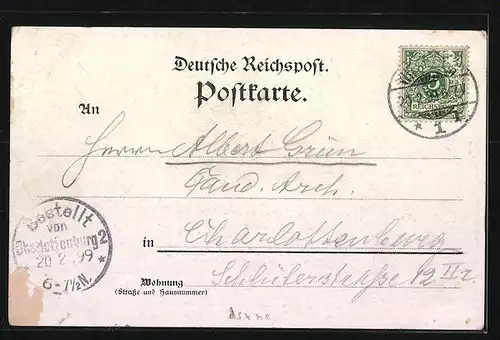 Deutsche Reichspost.
Postkarte.
5
REICHSPOST
* 1
An
Herrn Albert Grün
Cand. Arch.
Bestellt
von
Charlottenburg 2
20 2 99
6-7½N.
in Charlottenburg
Wohnung Schlüterstraße 12 II r.
(Straße und Hausnummer)